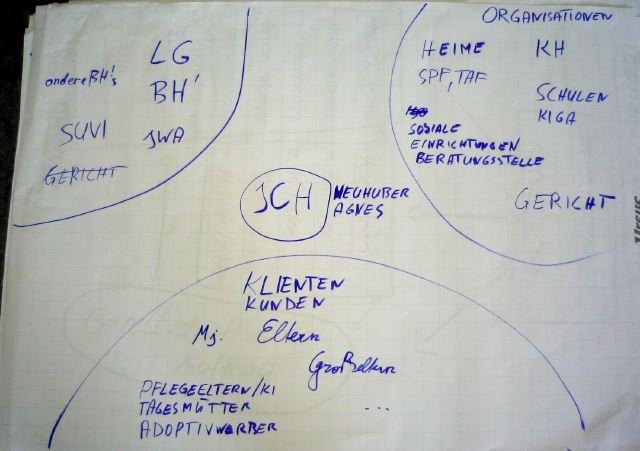 LG
andere BH's
BH'
SUVI
JWA
GERICHT
ORGANISATIONEN
HEIME
KH
SPF, TAF
SCHULEN
KIGA
SOZIALE
EINRICHTUNGEN
BERATUNGSSTELLE
GERICHT
ICH
NEUHUBER
AGNES
KLIENTEN
KUNDEN
Mj.
Eltern
Großeltern
PFLEGEELTERN/KI
TAGESMÜTTER
...
ADOPTIVWERBER